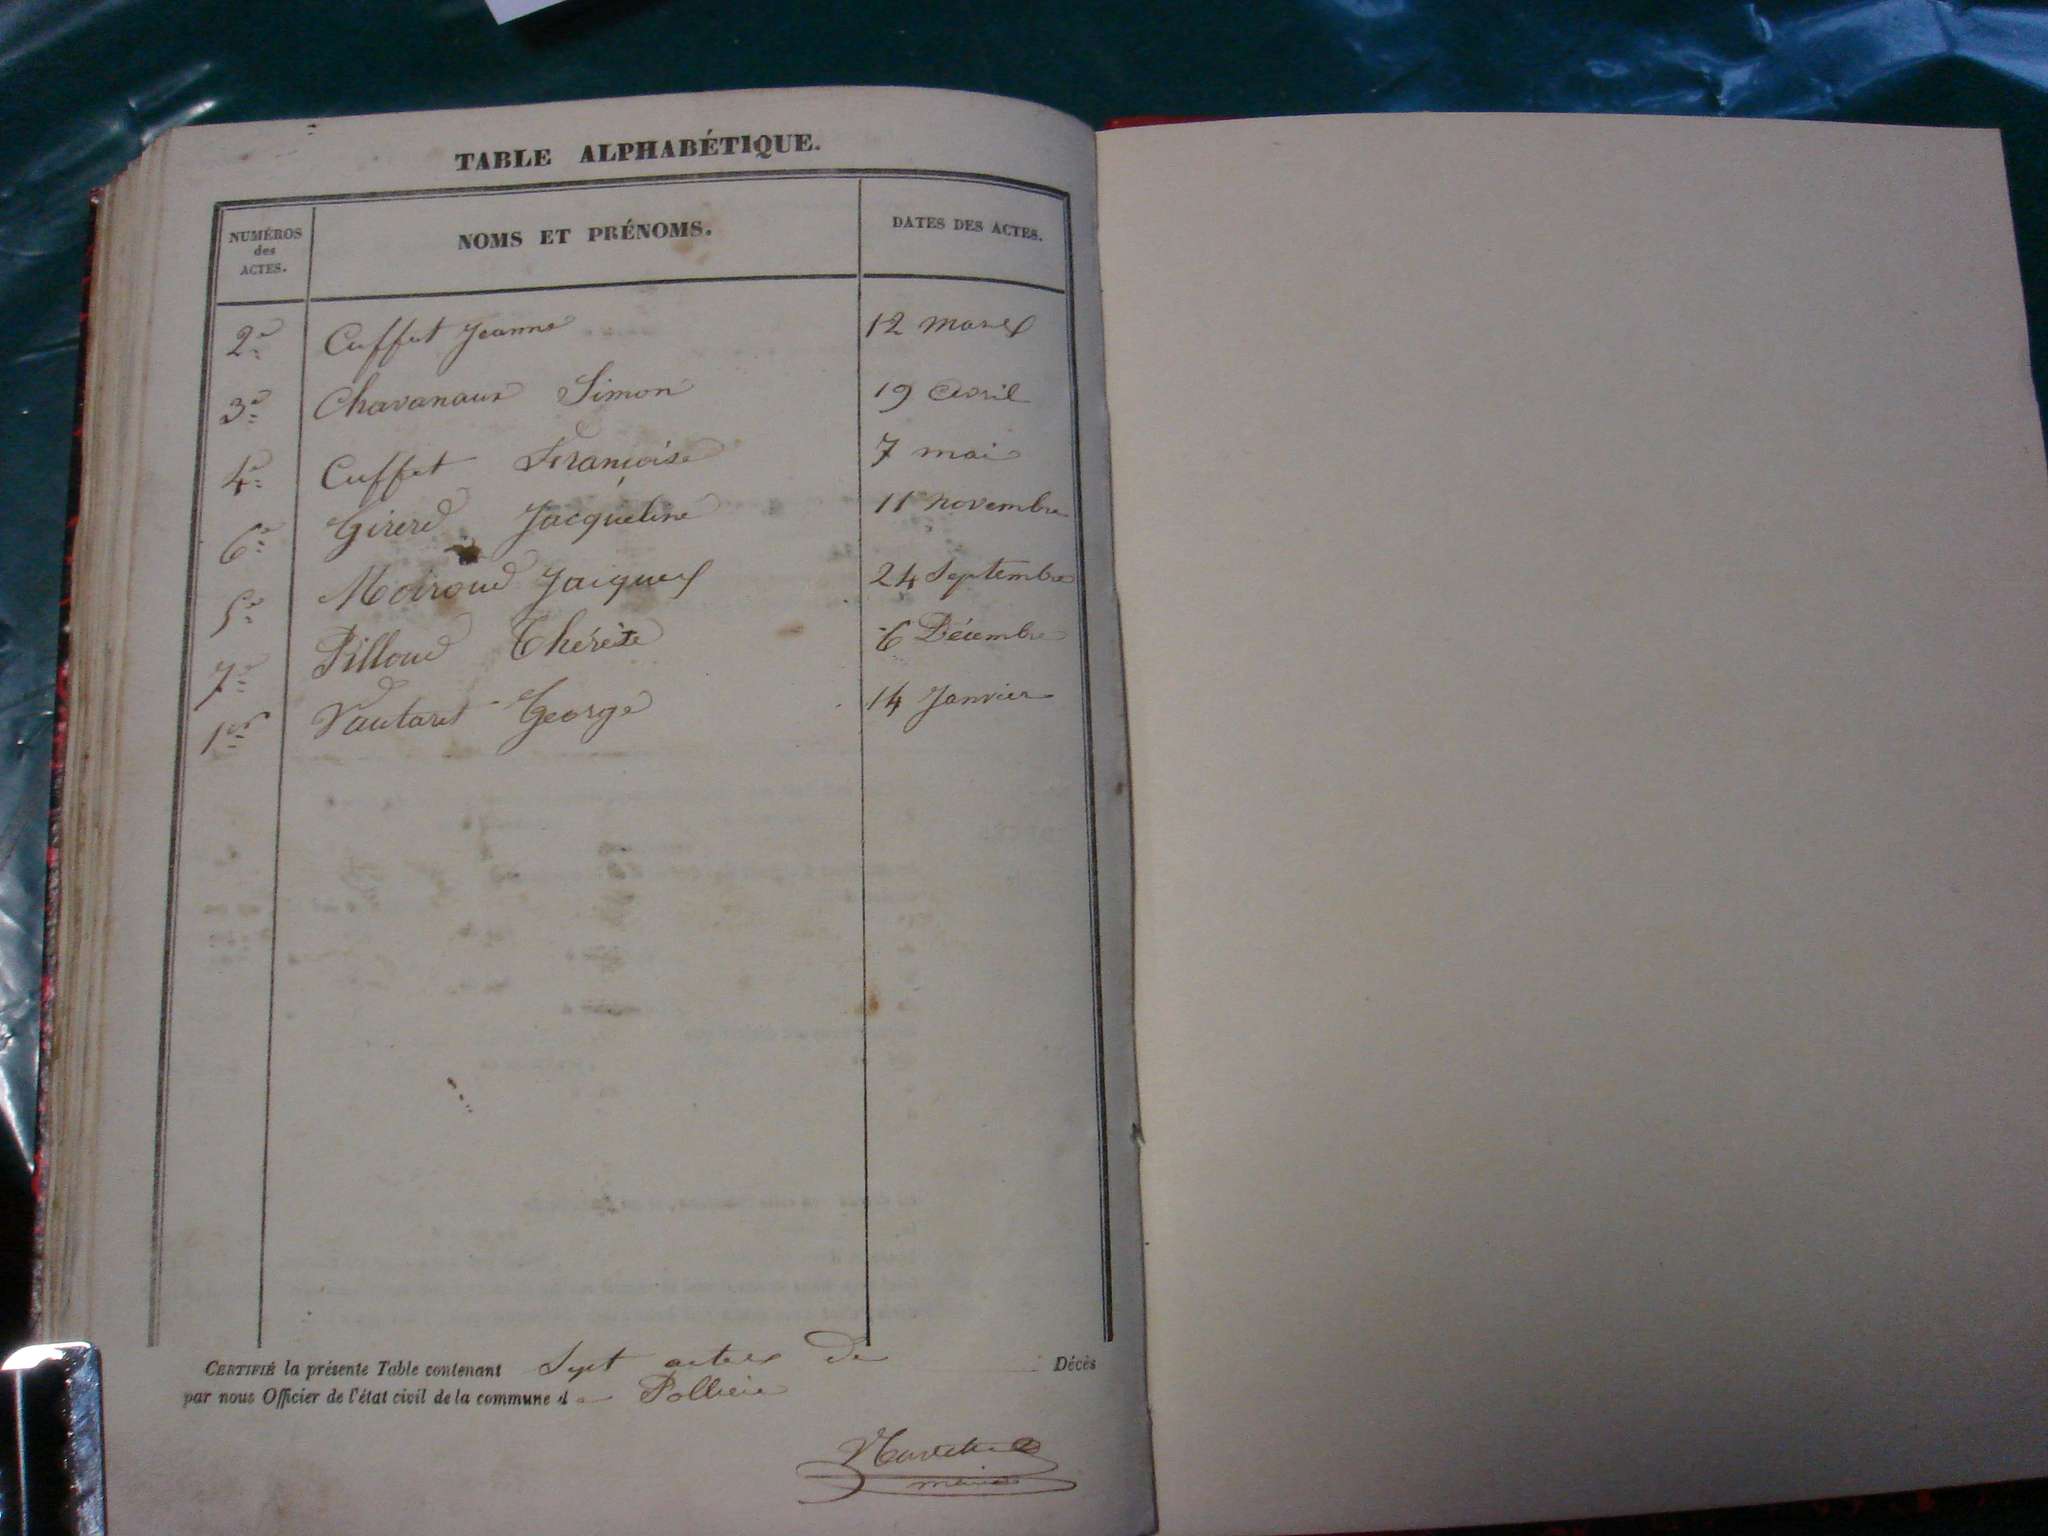 TABLE ALPHABÉTIQUE.
NUMÉROS des ACTES. NOMS ET PRÉNOMS. DATES DES ACTES.
2e Cuffet Jeanne 12 mars
3e Chavanaux Simon 19 avril
4e Cuffet Françoise 7 mai
6e Girerd Jacqueline 11 novembre
5e Moiroud Jacques 24 Septembre
7e Pilloud Thérèse 6 Décembre
1er Vautaret George 14 Janvier
CERTIFIÉ la présente Table contenant Sept actes de Décès
par nous Officier de l'état civil de la commune de Pollieu
maire